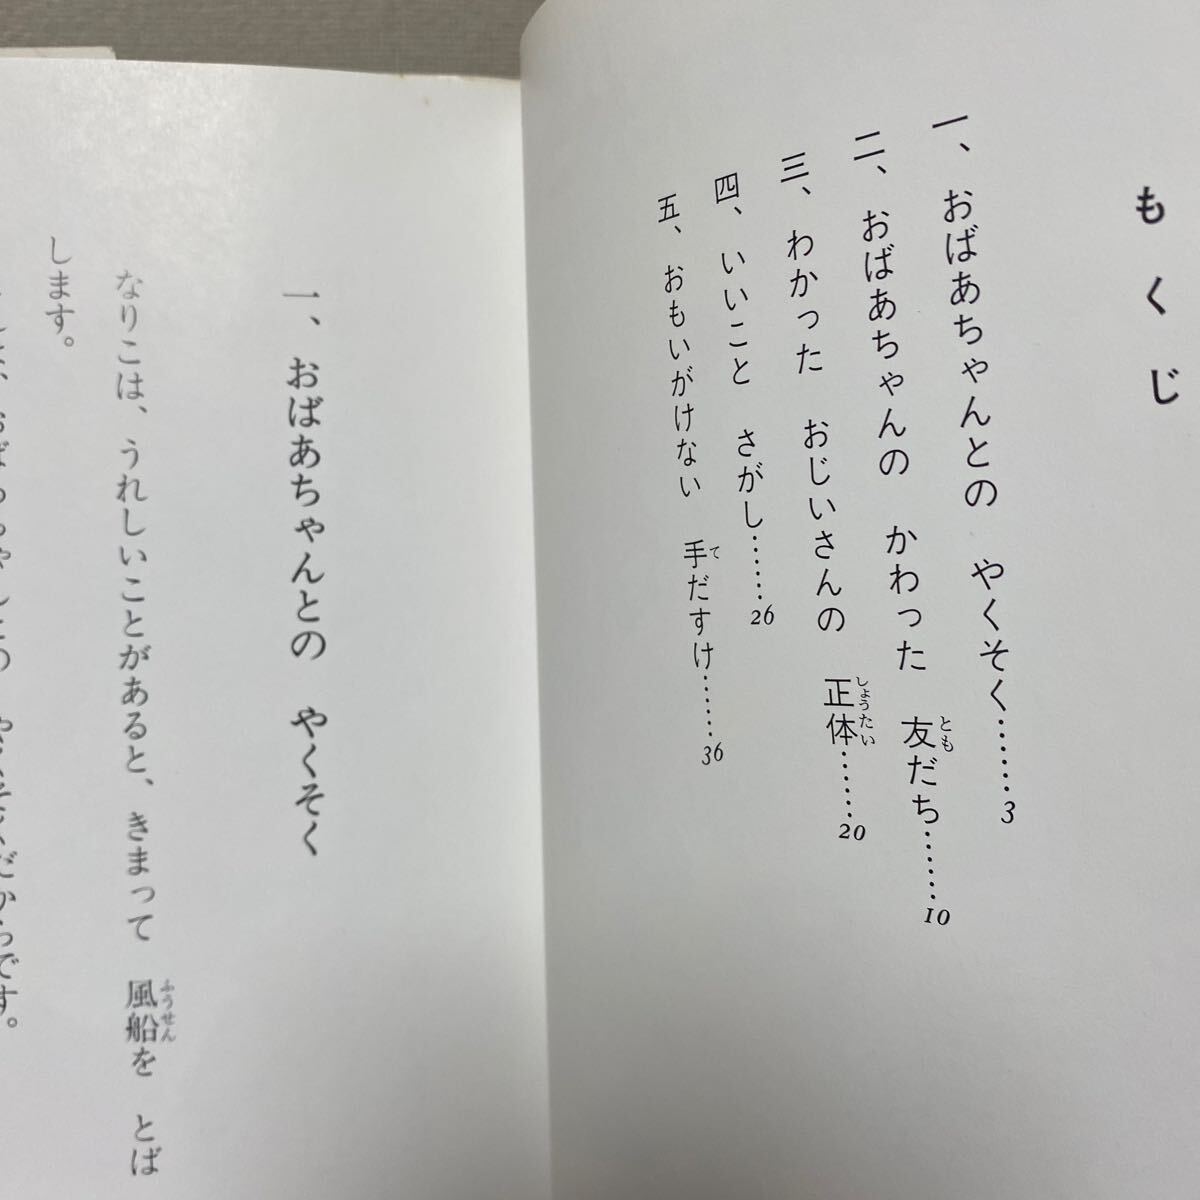 もくじ
一、おばあちゃんとの　やくそく……3
二、おばあちゃんの　かわった　友だち……10
三、わかった　おじいさんの　正体……20
四、いいこと　さがし……26
五、おもいがけない　手だすけ……36
一、おばあちゃんとの　やくそく
なりこは、うれしいことがあると、きまって　風船を　とば
します。
おばあちゃんとの　やくそくだからです。